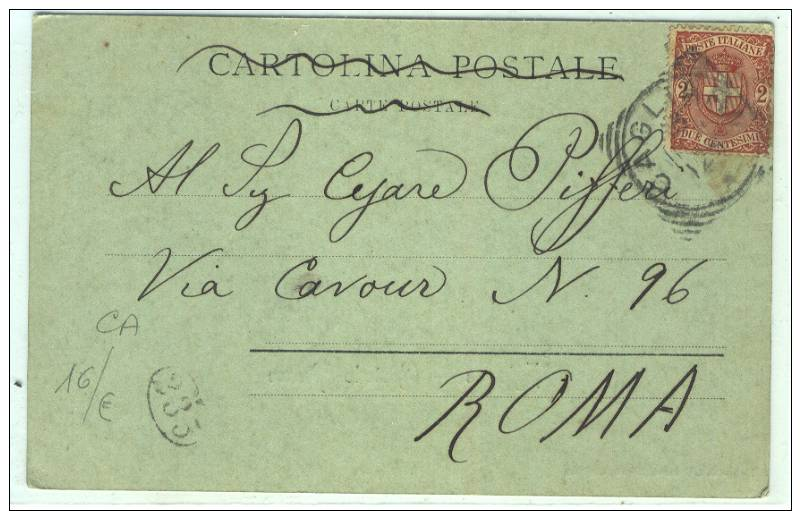 CARTOLINA POSTALE
CARTE POSTALE
POSTE ITALIANE
2 2
DUE CENTESIMI
CAGL
Al Sg Cesare Pifferi
Via Cavour N. 96
ROMA
CA
16/€
235